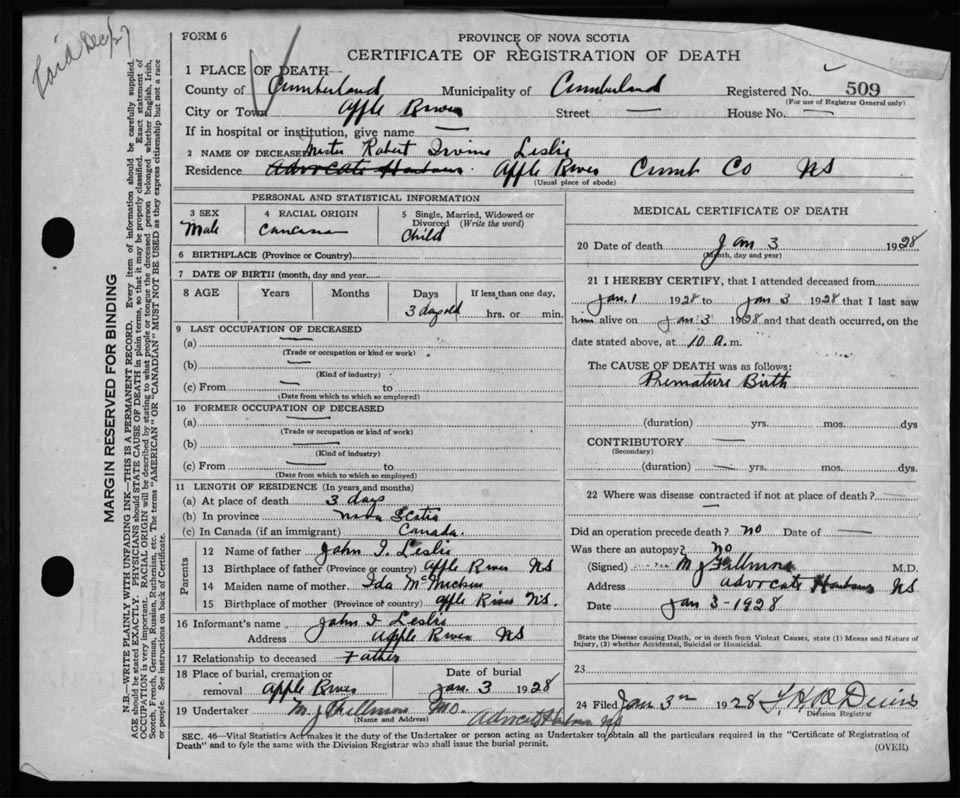 Paid Dec/27
FORM 6
PROVINCE OF NOVA SCOTIA
CERTIFICATE OF REGISTRATION OF DEATH
1 PLACE OF DEATH—
County of Cumberland Municipality of Cumberland Registered No. 509
(For use of Registrar General only)
City or Town Apple River Street — House No. —
If in hospital or institution, give name —
2 NAME OF DECEASED Mister Robert Irvine Leslie
Residence Advocate Harbour Apple River Cumb Co NS
(Usual place of abode)
PERSONAL AND STATISTICAL INFORMATION
3 SEX Male
4 RACIAL ORIGIN
5 Single, Married, Widowed or Divorced (Write the word) Child
6 BIRTHPLACE (Province or Country)
7 DATE OF BIRTH (month, day and year)
8 AGE Years Months Days If less than one day,
3 days old hrs. or min.
9 LAST OCCUPATION OF DECEASED
(a) —
(Trade or occupation or kind or work)
(b) —
(Kind of industry)
(c) From — to
(Date from which to which so employed)
10 FORMER OCCUPATION OF DECEASED
(a) —
(Trade or occupation or kind of work)
(b) —
(Kind of industry)
(c) From — to
(Date from which to which so employed)
11 LENGTH OF RESIDENCE (In years and months)
(a) At place of death 3 days
(b) In province Nova Scotia
(c) In Canada (if an immigrant) Canada.
Parents
12 Name of father John I. Leslie
13 Birthplace of father (Province or country) Apple River NS
14 Maiden name of mother Ida
15 Birthplace of mother (Province of country) Apple River NS.
16 Informant's name John I Leslie
Address Apple River NS
17 Relationship to deceased Father
18 Place of burial, cremation or removal Apple River
Date of burial Jan. 3 1928
19 Undertaker M. J. Fillmore M.D. Advocate Harbour NS
(Name and Address)
MEDICAL CERTIFICATE OF DEATH
20 Date of death Jan 3 1928
(Month, day and year)
21 I HEREBY CERTIFY, that I attended deceased from
Jan. 1 1928 to Jan 3 1928 that I last saw
him alive on Jan 3 1928 and that death occurred, on the
date stated above, at 10 a.m.
The CAUSE OF DEATH was as follows:
Premature Birth
(duration) yrs. mos. dys
CONTRIBUTORY —
(Secondary)
(duration) — yrs. mos. dys.
22 Where was disease contracted if not at place of death?
—
Did an operation precede death? no Date of —
Was there an autopsy? no
(Signed) M J Fillmore M.D.
Address Advocate Harbour NS
Date Jan 3 - 1928
State the Disease causing Death, or in death from Violeat Causes, state (1) Means and Nature of
Injury, (2) whether Accidental, Suicidal or Homicidal.
23
24 Filed Jan 3rd 1928
Division Registrar
SEC. 46—Vital Statistics Act makes it the duty of the Undertaker or person acting as Undertaker to obtain all the particulars required in the "Certificate of Registration of
Death" and to fyle the same with the Division Registrar who shall issue the burial permit.
(OVER)
MARGIN RESERVED FOR BINDING
N.B.—WRITE PLAINLY WITH UNFADING INK—THIS IS A PERMANENT RECORD. Every item of information should be carefully supplied.
AGE should be stated EXACTLY. PHYSICIANS should STATE CAUSE OF DEATH in plain terms, so that it may be properly classified. Exact statement of
OCCUPATION is very important. RACIAL ORIGIN will be described by stating to what people or tongue the deceased person belonged whether English, Irish,
Scotch, French, German, Russian, Ruthenian, etc. The terms "AMERICAN" OR "CANADIAN" MUST NOT BE USED as they express citizenship but not a race
or people. See instructions on back of Certificate.